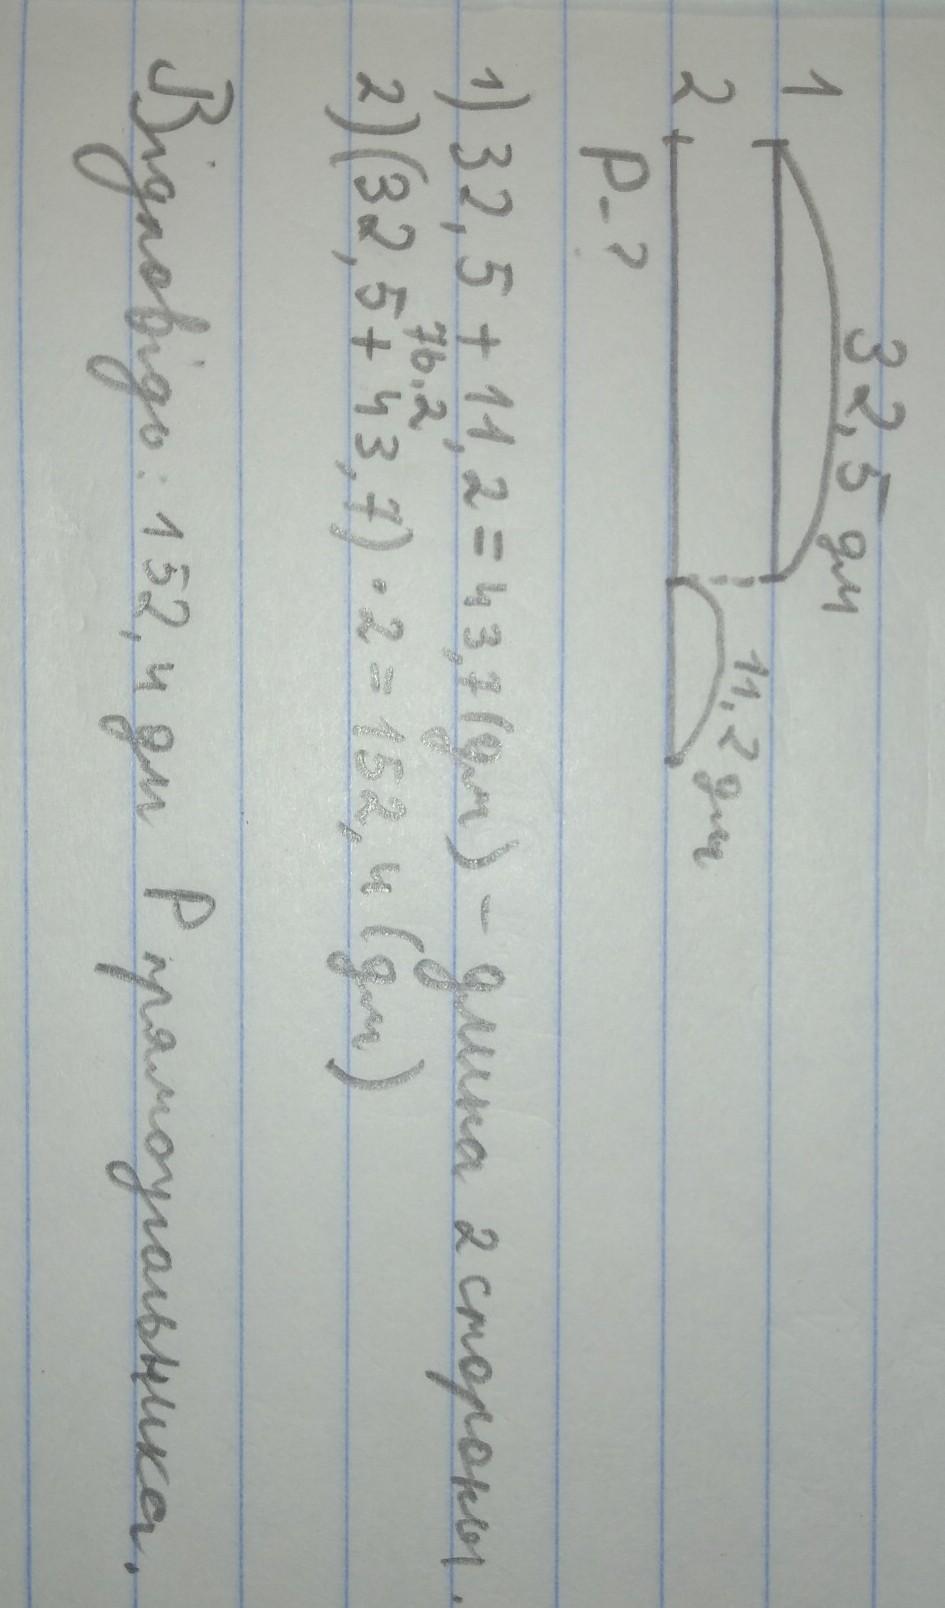 32,5 дм
1
11,2 дм
2
P-?
1) 32,5 + 11,2 = 43,7 (дм) - длина 2 стороны.
76,2
2) (32,5 + 43,7) · 2 = 152,4 (дм)
Відповідь: 152,4 дм P прямоугольника.